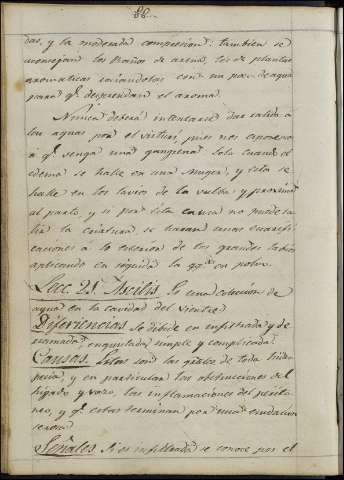 88
das, y la moderada compresion: tambien se
aconsejan los Baños de arena, los de plantas
aromaticas rociandolas con un poco de agua
para q.e desprendan el aroma.
Nunca deberá intentarse dar salida à
las aguas por el visturi, pues nos esponemos
à q.e venga una gangrena solo cuando el
edema se halle en una muger, y esta se
halle en los lavios de la vulba y proxima
al parto, y si por esta causa no puede sa
lir la criatura, se haran unas escarifi
caciones à lo esterior de los grandes labios
aplicando en seguida la en polvo.
Lecc. 25. Ascitis. Es una coleccion de
agua en la cavidad del vientre
Diferiencias. Se dibide en infiltrada y de
rramada, enquistada simple y complicada.
Causas. Estas son las grales de toda hidro
pecia, y en particular las obstrucciones del
higado y vazo, las inflamaciones del perito
neo, y q.e estas terminan por una exudacion
serosa.
Señales. Si es infiltrada se conoce por el